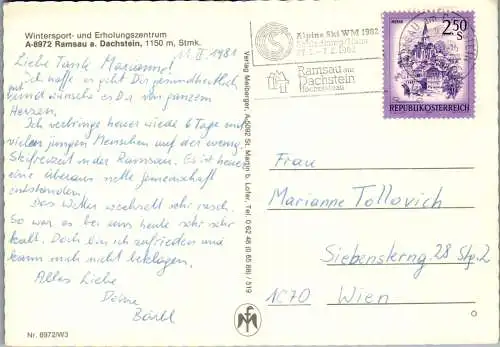 Wintersport- und Erholungszentrum
A-8972 Ramsau a. Dachstein, 1150 m, Stmk.
11.II.1981
Liebe Tante Marianne!
Ich hoffe es geht Dir gesundheitlich
gut und wünsche es Dir von ganzem
Herzen.
Ich verbringe heuer wieder 6 Tage mit
vielen jungen Menschen auf der
Skifreizeit in der Ramsau. Es ist heuer
eine überaus nette Gemeinschaft
entstanden.
Das Wetter wechselt sehr rasch.
So war es bei uns heute sehr sehr
kalt. Doch bin ich zufrieden und
kann mich nicht beklagen.
Alles Liebe
Deine
Bärbl
Nr. 8972/W3
Verlag Meiberger, A-5092 St. Martin b. Lofer, Tel. 0 62 48
Alpine Ski WM 1982
Schladming/Haus
Ramsau am
Dachstein
2.50
S
REPUBLIK ÖSTERREICH
Frau
Marianne Tollovich
Siebensterng. 28 Stg. 2
1070 Wien